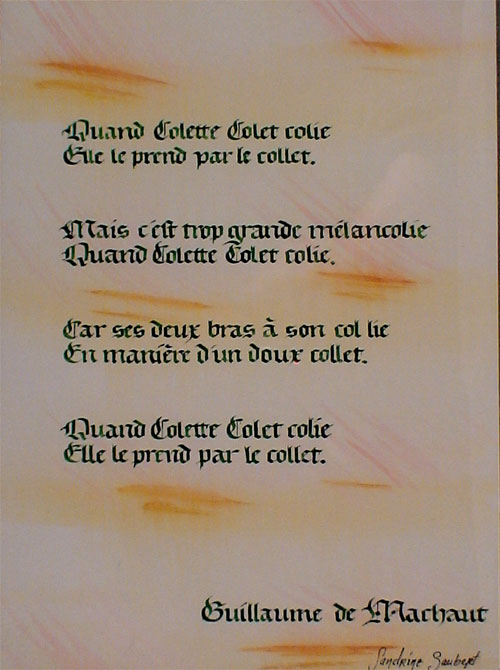 Quand Colette Colet colie
Elle le prend par le collet.
Mais c'est trop grande mélancolie
Quand Colette Colet colie.
Car ses deux bras à son col lie
En manière d'un doux collet.
Quand Colette Colet colie
Elle le prend par le collet.
Guillaume de Machaut
Sandrine Saubert